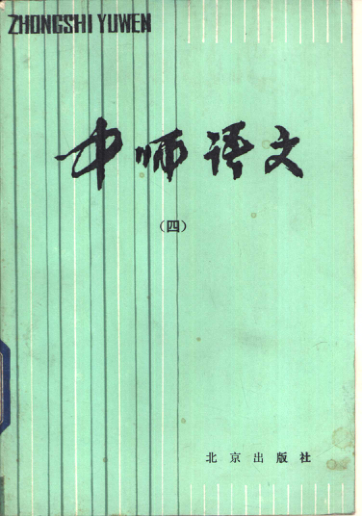 ZHONGSHI YUWEN
中师语文
（四）
北京出版社